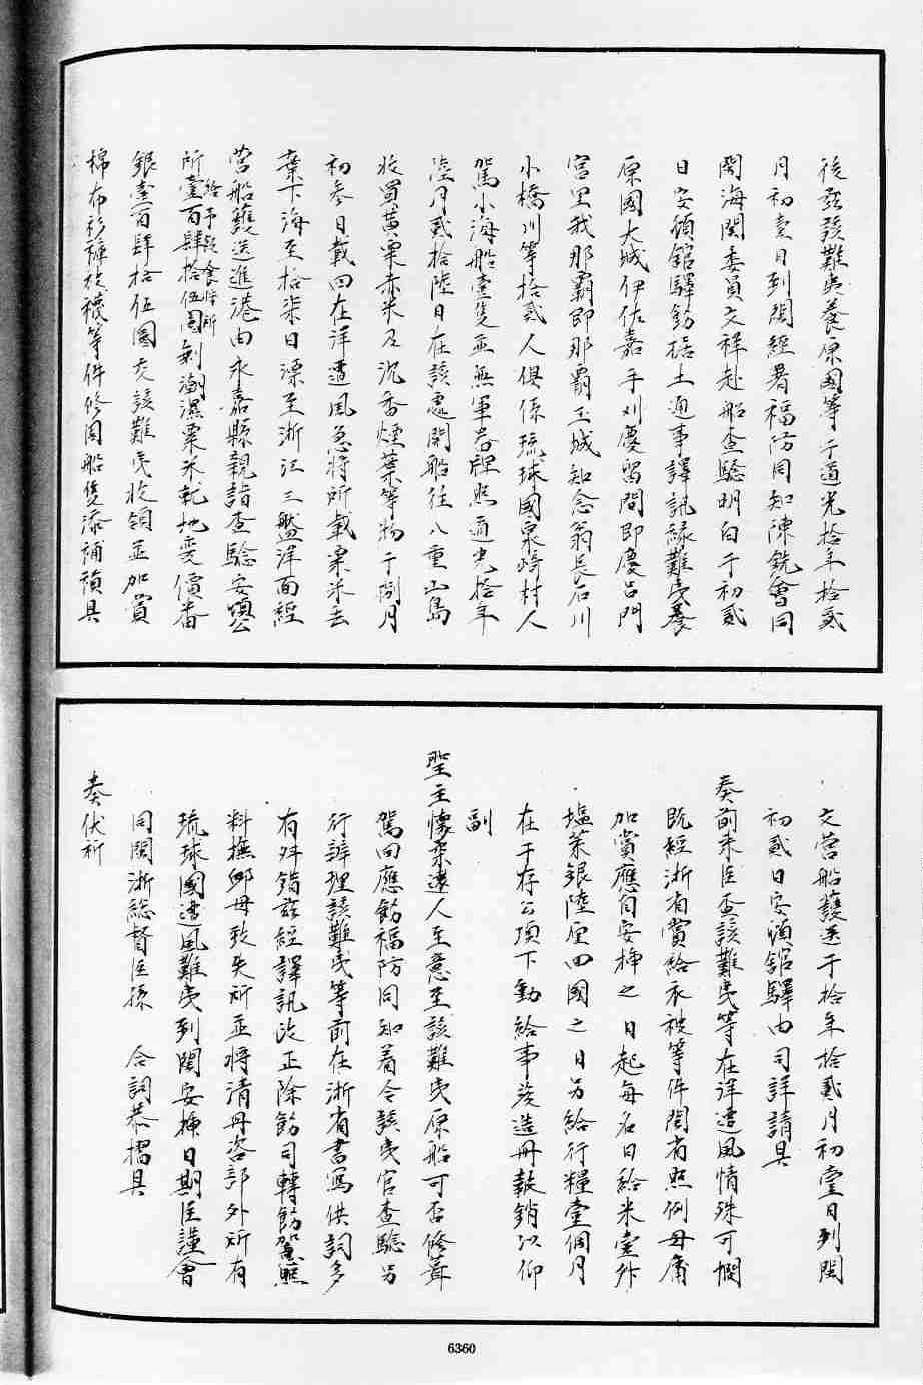 後茲該難夷養原國等于道光拾年拾貳
月初壹日到閩經署福防同知陳銑會同
閩海關委員文祥赴船查驗明白于初貳
日安頓館驛飭据土通事譯訊緣難夷養
原國大城伊佐嘉手刈慶留間即慶呂門
宮里我那霸即那霸玉城知念翁長石川
小橋川等拾貳人俱係琉球國泉崎村人
駕小海船壹隻並無軍器牌照道光拾年
陸月貳拾陸日在該處開船往八重山島
收買黃粟赤米及沉香煙葉等物于捌月
初叁日載回在洋遭風急將所載粟米丟
棄下海至拾柒日漂至浙江三盤洋面經
營船護送進港由永嘉縣親詣查驗安頓公
所給予飯食將所剩潮濕粟米就地變價番
銀壹百肆拾伍圓交該難夷收領並加賞
棉布衫褲被襪等件修固船隻添補槓具
交營船護送于拾年拾貳月初壹日到閩
初貳日安頓館驛由司詳請具
奏前來臣查該難夷等在洋遭風情殊可憫
既經浙省賞給衣被等件閩省照例毋庸
加賞應自安插之日起每名日給米壹升
塩菜銀陸厘回國之日另給行糧壹個月
在于存公項下動給事竣造冊報銷以仰
副
聖主懷柔遠人至意至該難夷原船可否修葺
駕回應飭福防同知着令該夷官查驗另
行辦理該難夷等前在浙省書寫供詞多
有舛錯茲經譯訊改正除飭司轉飭加意照
料撫卹毋致失所並將清冊咨部外所有
琉球國遭風難夷到閩安插日期臣謹會
同閩浙總督臣孫　合詞恭摺具
奏伏祈
6360